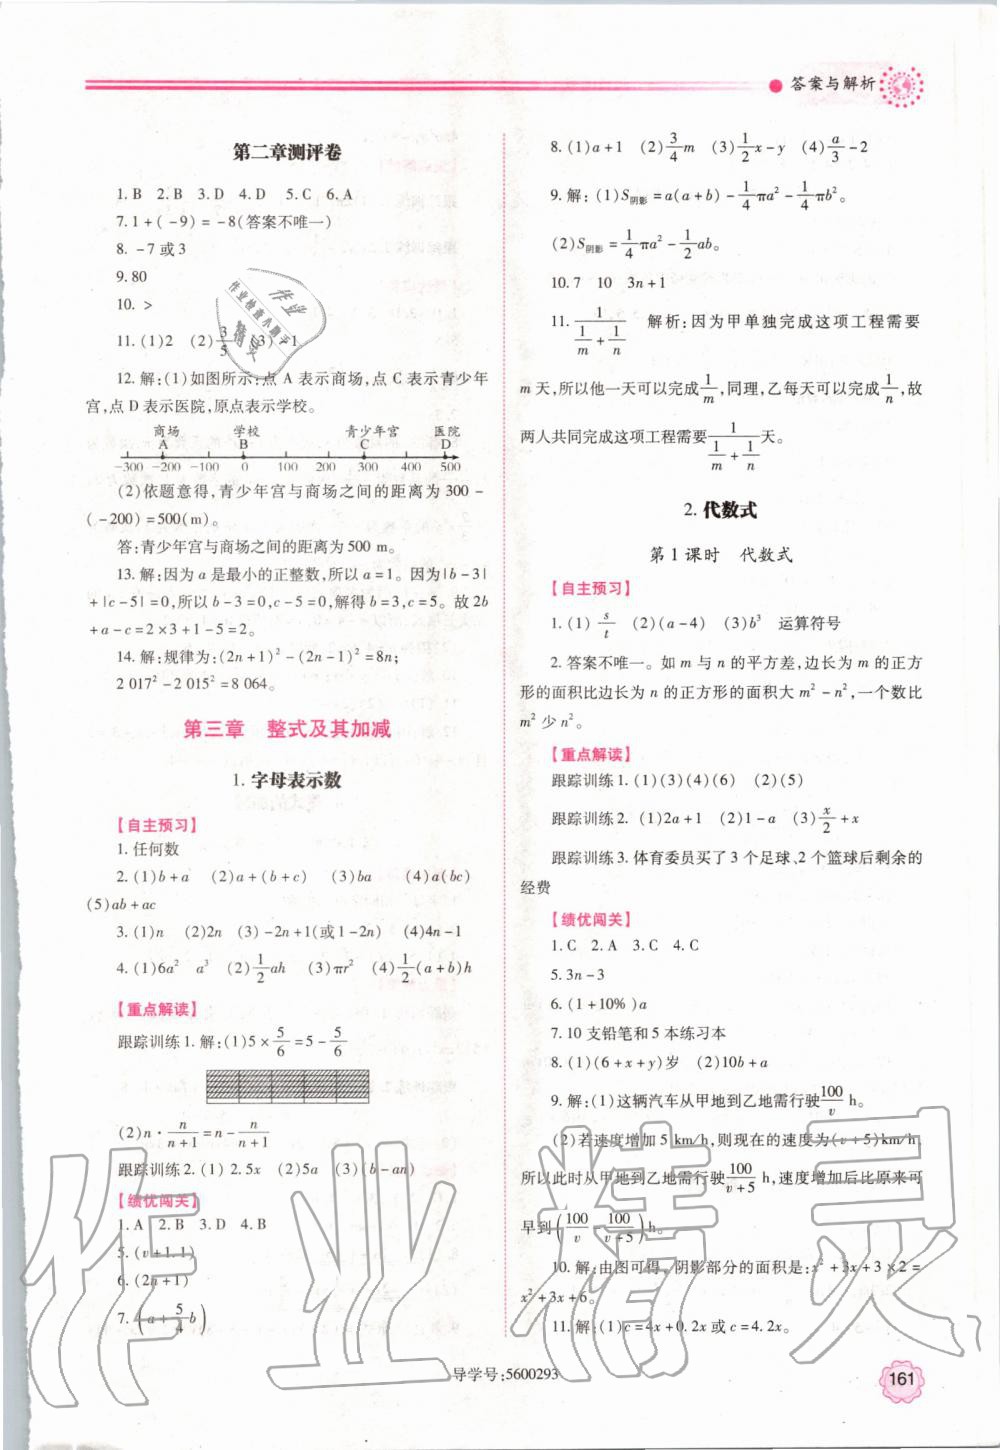 答案与解析
第二章测评卷
1. B 2. B 3. D 4. D 5. C 6. A
7. 1+(-9)=-8(答案不唯一)
8. -7或3
9. 80
10. >
11. (1)2 (2)3/5 (3)-1
12. 解:(1)如图所示:点 A 表示商场,点 C 表示青少年
宫,点 D 表示医院,原点表示学校。
商场 学校 青少年宫 医院
A B C D
-300 -200 -100 0 100 200 300 400 500
(2)依题意得,青少年宫与商场之间的距离为 300-
(-200)=500(m)。
答:青少年宫与商场之间的距离为 500 m。
13. 解:因为 a 是最小的正整数,所以 a=1。因为|b-3|
+|c-5|=0,所以 b-3=0,c-5=0,解得 b=3,c=5。故 2b
+a-c=2×3+1-5=2。
14. 解:规律为:(2n+1)²-(2n-1)²=8n;
2 017²-2 015²=8 064。
第三章 整式及其加减
1. 字母表示数
【自主预习】
1. 任何数
2. (1)b+a (2)a+(b+c) (3)ba (4)a(bc)
(5)ab+ac
3. (1)n (2)2n (3)-2n+1(或1-2n) (4)4n-1
4. (1)6a² a³ (2)1/2ah (3)πr² (4)1/2(a+b)h
【重点解读】
跟踪训练1. 解:(1)5×5/6=5-5/6
(2)n·n/(n+1)=n-n/(n+1)
跟踪训练2. (1) 2.5x (2)5a (3)(b-an)
【绩优闯关】
1. A 2. B 3. D 4. B
5. (v+1.1)
6. (2n+1)
7. (a+5/4b)
8. (1)a+1 (2)3/4m (3)1/2x-y (4)a/3-2
9. 解:(1)S阴影=a(a+b)-1/4πa²-1/4πb²。
(2)S阴影=1/4πa²-1/2ab。
10. 7 10 3n+1
11. 1/(1/m+1/n) 解析:因为甲单独完成这项工程需要
m 天,所以他一天可以完成1/m,同理,乙每天可以完成1/n,故
两人共同完成这项工程需要1/(1/m+1/n)天。
2. 代数式
第 1 课时 代数式
【自主预习】
1. (1)s/t (2)(a-4) (3)b³ 运算符号
2. 答案不唯一。如 m 与 n 的平方差,边长为 m 的正方
形的面积比边长为 n 的正方形的面积大 m²-n²,一个数比
m² 少 n²。
【重点解读】
跟踪训练1. (1)(3)(4)(6) (2)(5)
跟踪训练2. (1)2a+1 (2)1-a (3)x/2+x
跟踪训练3. 体育委员买了 3 个足球、2 个篮球后剩余的
经费
【绩优闯关】
1. C 2. A 3. C 4. C
5. 3n-3
6. (1+10%)a
7. 10 支铅笔和 5 本练习本
8. (1)(6+x+y)岁 (2)10b+a
9. 解:(1)这辆汽车从甲地到乙地需行驶100/v h。
(2)若速度增加 5 km/h,则现在的速度为(v+5)km/h,
所以此时从甲地到乙地需行驶100/(v+5) h,速度增加后比原来可
早到(100/v-100/(v+5))h。
10. 解:由图可得,阴影部分的面积是:x²+3x+3×2=
x²+3x+6。
11. 解:(1)c=4x+0.2x 或 c=4.2x。
导学号:5600293
161
作业
作业检查小助手
精灵
作业精灵